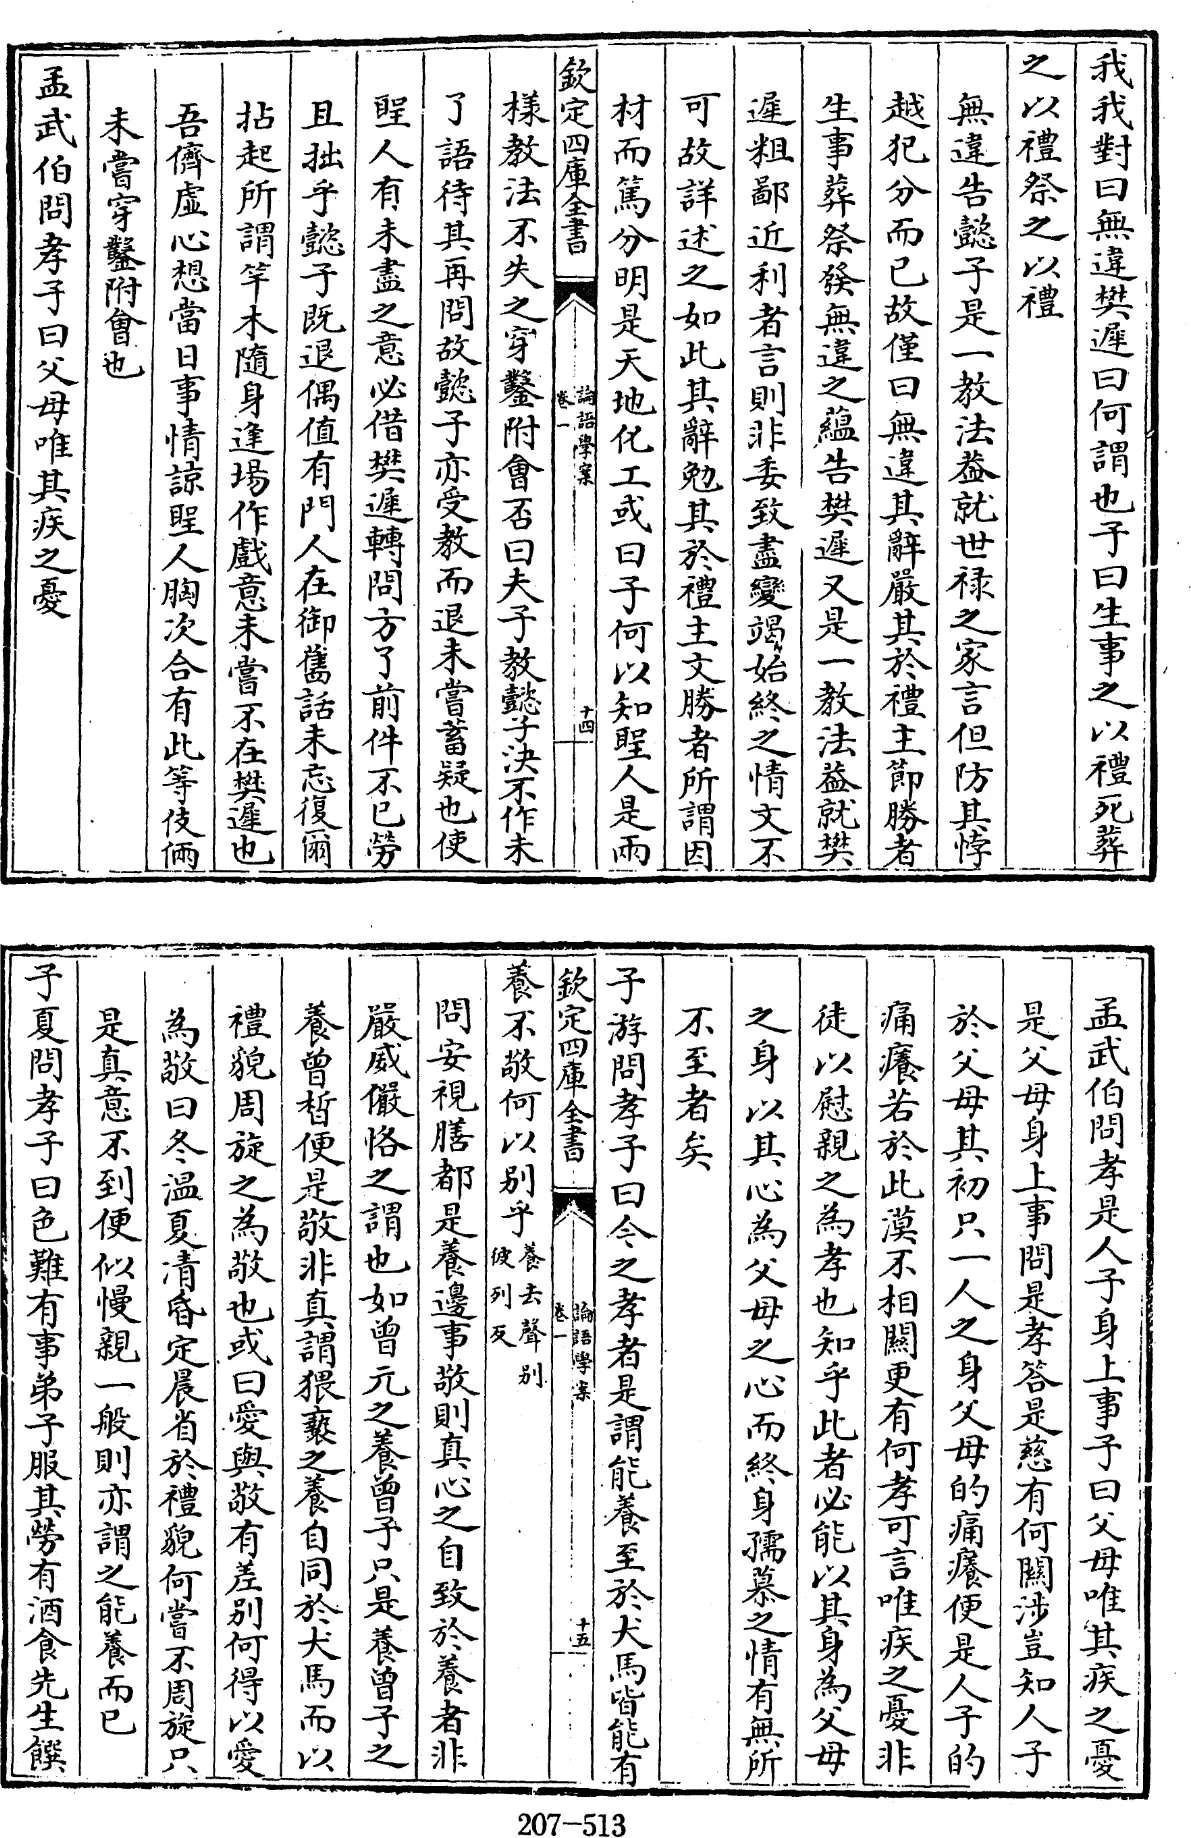 我我對曰無違樊遲曰何謂也子曰生事之以禮死葬
之以禮祭之以禮
無違告懿子是一教法葢就世禄之家言但防其悖
越犯分而已故僅曰無違其辭嚴其於禮主節勝者
生事葬祭發無違之藴告樊遲又是一教法葢就樊
遲粗鄙近利者言則非委致盡變竭始終之情文不
可故詳述之如此其辭勉其於禮主文勝者所謂因
材而篤分明是天地化工或曰子何以知聖人是兩
欽定四庫全書
論語學案
卷一
十四
樣教法不失之穿鑿附會否曰夫子教懿子決不作未
了語待其再問故懿子亦受教而退未嘗蓄疑也使
聖人有未盡之意必借樊遲轉問方了前件不已勞
且拙乎懿子既退偶值有門人在御舊話未忘復爾
拈起所謂竿木隨身逢場作戲意未嘗不在樊遲也
吾儕虛心想當日事情諒聖人胸次合有此等伎倆
未嘗穿鑿附會也
孟武伯問孝子曰父母唯其疾之憂
孟武伯問孝是人子身上事子曰父母唯其疾之憂
是父母身上事問是孝答是慈有何關涉豈知人子
於父母其初只一人之身父母的痛癢便是人子的
痛癢若於此漠不相關更有何孝可言唯疾之憂非
徒以慰親之為孝也知乎此者必能以其身為父母
之身以其心為父母之心而終身孺慕之情有無所
不至者矣
子游問孝子曰今之孝者是謂能養至於犬馬皆能有
欽定四庫全書
論語學案
卷一
十五
養不敬何以别乎養去聲别
彼列反
問安視膳都是養邊事敬則真心之自致於養者非
嚴威儼恪之謂也如曾元之養曾子只是養曾子之
養曾晳便是敬非真謂猥褻之養自同於犬馬而以
禮貌周旋之為敬也或曰愛與敬有差别何得以愛
為敬曰冬溫夏凊昏定晨省於禮貌何嘗不周旋只
是真意不到便似慢親一般則亦謂之能養而已
子夏問孝子曰色難有事弟子服其勞有酒食先生饌
207-513